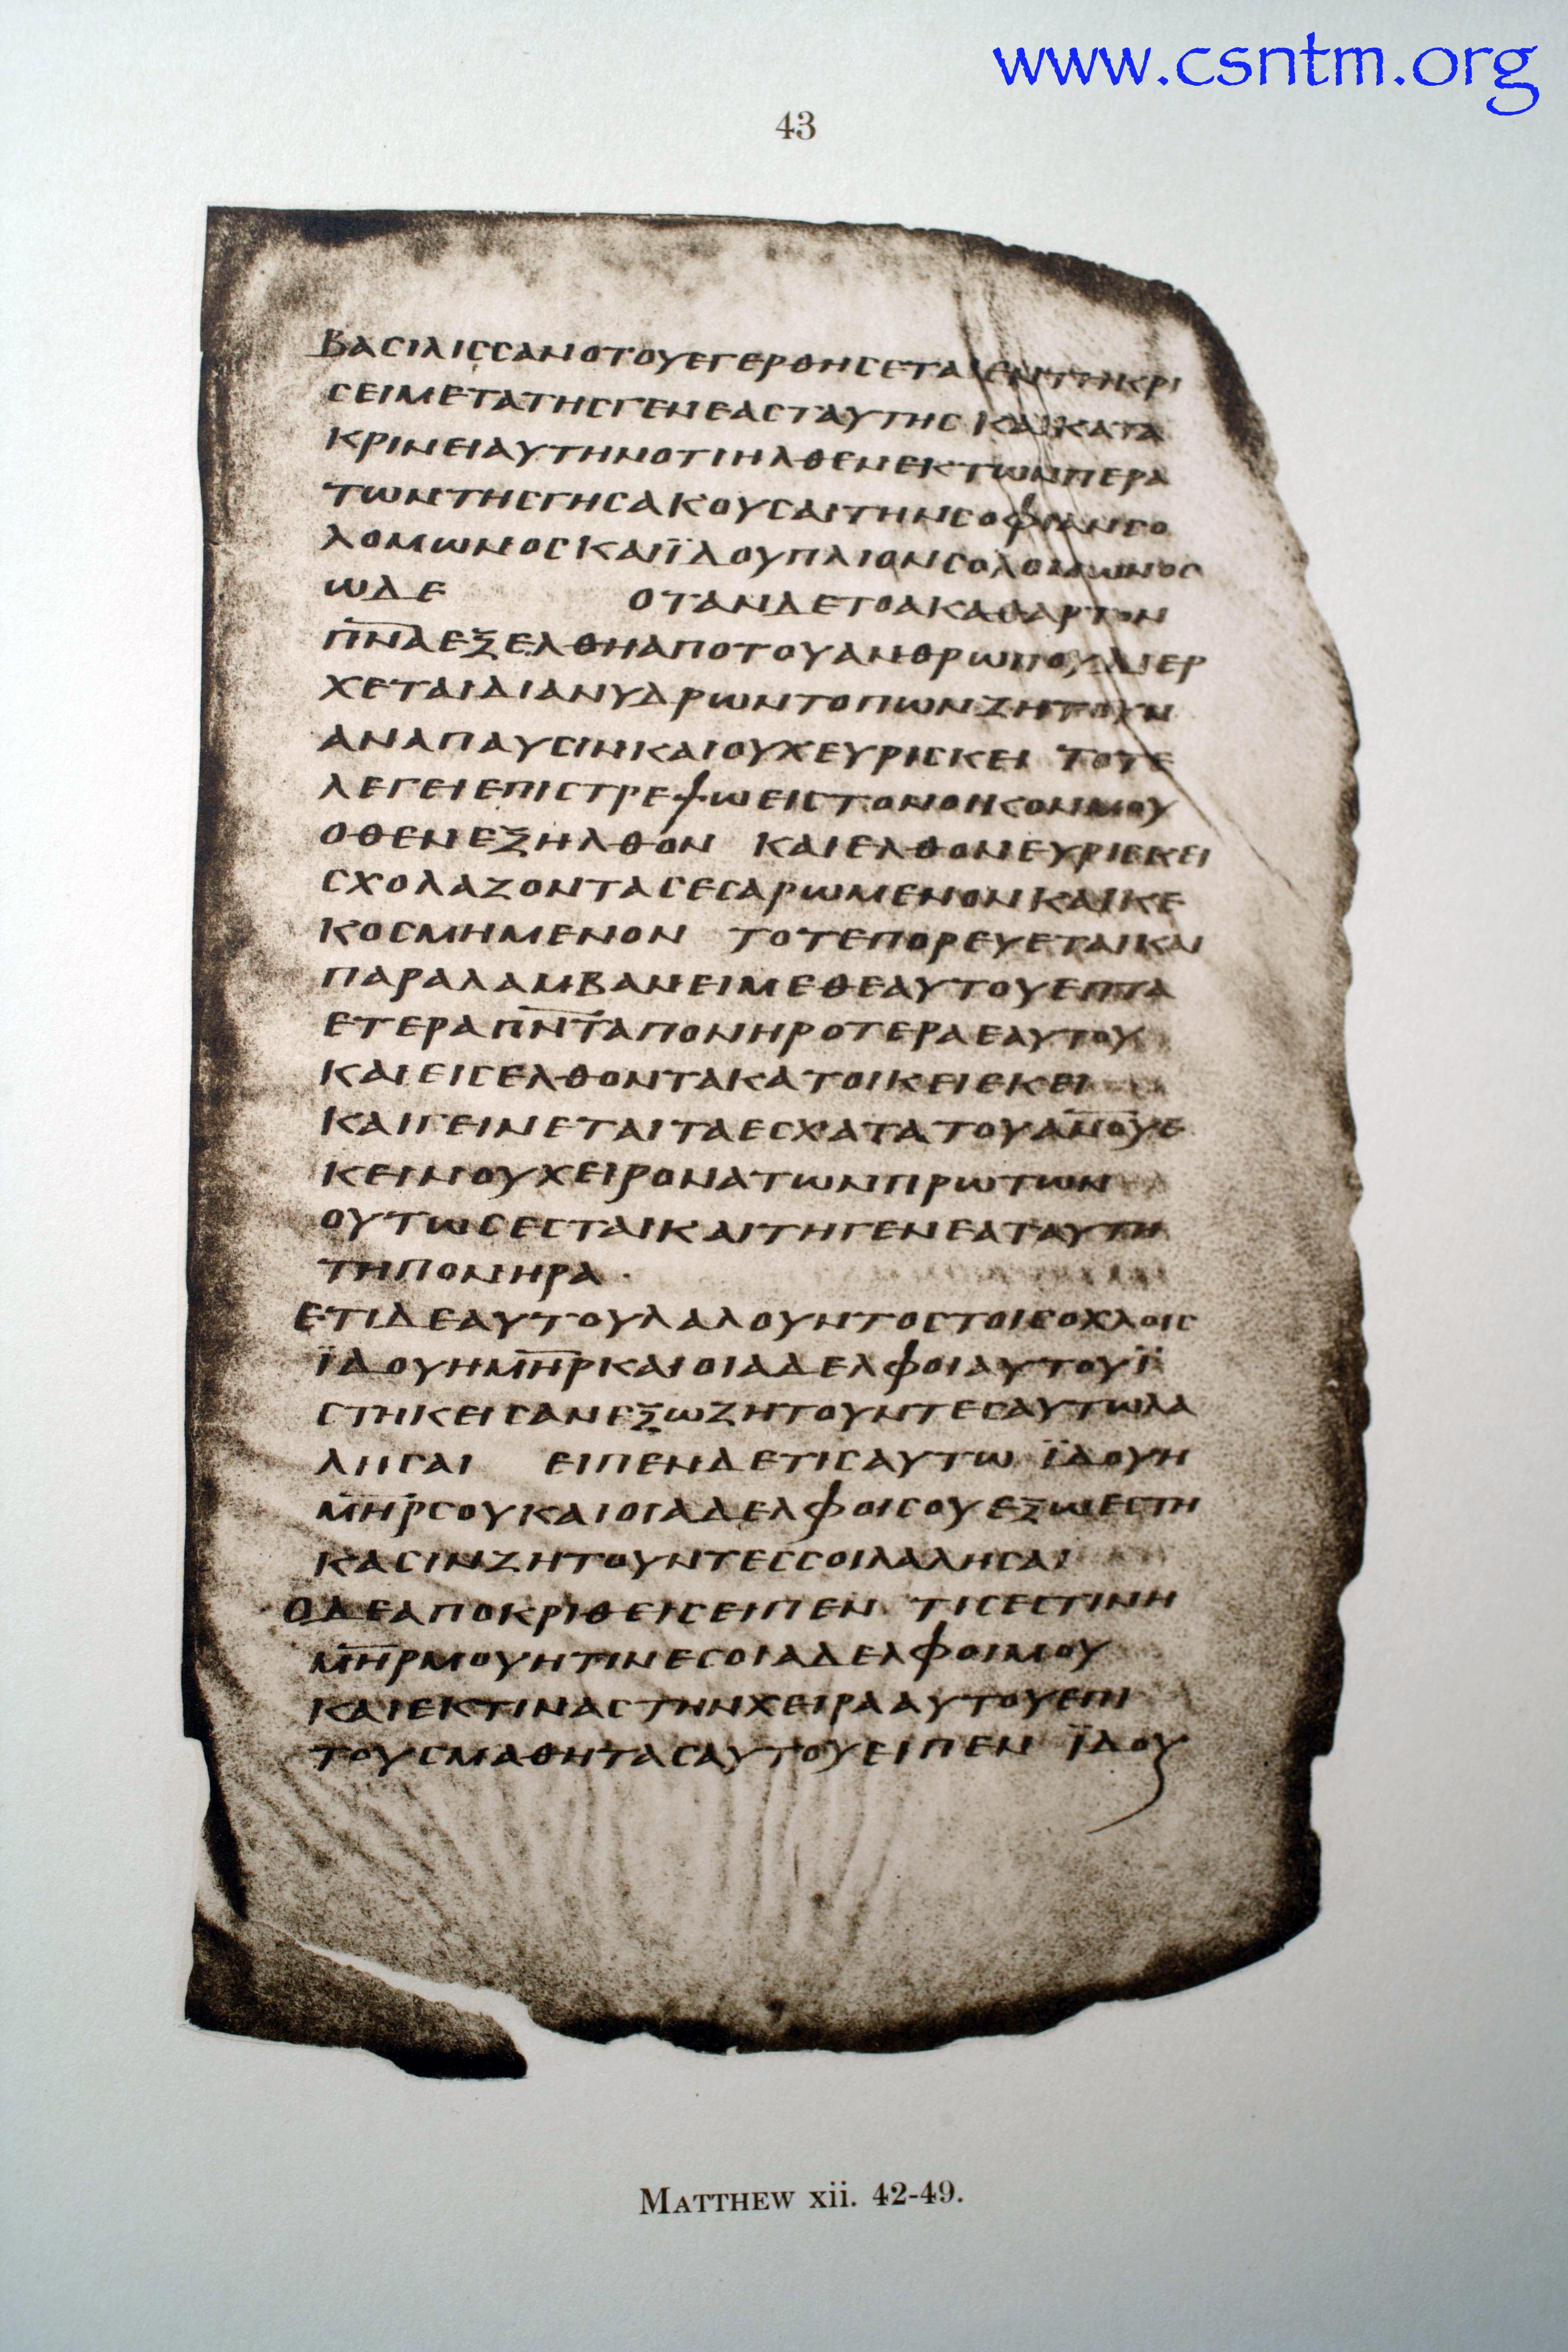 www.csntm.org
43
ΒΑCΙΛΙCCΑΝΟΤΟΥΕΓΕΡΘΗCΕΤΑΙΕΝΤΗΚΡΙ
CΕΙΜΕΤΑΤΗCΓΕΝΕΑCΤΑΥΤΗC ΚΑΙΚΑΤΑ
ΚΡΙΝΕΙΑΥΤΗΝΟΤΙΗΛΘΕΝΕΚΤΩΝΠΕΡΑ
ΤΩΝΤΗCΓΗCΑΚΟΥCΑΙΤΗΝCΟΦΙΑΝCΟ
ΛΟΜΩΝΟCΚΑΙΪΔΟΥΠΛΙΟΝCΟΛΟΜΩΝΟC
ΩΔΕ ΟΤΑΝΔΕΤΟΑΚΑΘΑΡΤΟΝ
Π̅Ν̅Α̅ΕΞΕΛΘΗΑΠΟΤΟΥΑΝΘΡΩΠΟΥΔΙΕΡ
ΧΕΤΑΙΔΙΑΝΥΔΡΩΝΤΟΠΩΝΖΗΤΟΥΝ
ΑΝΑΠΑΥCΙΝΚΑΙΟΥΧΕΥΡΙCΚΕΙ ΤΟΤΕ
ΛΕΓΕΙΕΠΙCΤΡΕΨΩΕΙCΤΟΝΟΙΚΟΝΜΟΥ
ΟΘΕΝΕΞΗΛΘΟΝ ΚΑΙΕΛΘΟΝΕΥΡΙCΚΕΙ
CΧΟΛΑΖΟΝΤΑCΕCΑΡΩΜΕΝΟΝΚΑΙΚΕ
ΚΟCΜΗΜΕΝΟΝ ΤΟΤΕΠΟΡΕΥΕΤΑΙΚΑΙ
ΠΑΡΑΛΑΜΒΑΝΕΙΜΕΘΕΑΥΤΟΥΕΠΤΑ
ΕΤΕΡΑΠ̅Ν̅Τ̅Α̅ΠΟΝΗΡΟΤΕΡΑΕΑΥΤΟΥ
ΚΑΙΕΙCΕΛΘΟΝΤΑΚΑΤΟΙΚΕΙΕΚΕΙ
ΚΑΙΓΕΙΝΕΤΑΙΤΑΕCΧΑΤΑΤΟΥΑ̅Ν̅Ο̅Υ̅Ε
ΚΕΙΝΟΥΧΕΙΡΟΝΑΤΩΝΠΡΩΤΩΝ
ΟΥΤΩCΕCΤΑΙΚΑΙΤΗΓΕΝΕΑΤΑΥΤΗ
ΤΗΠΟΝΗΡΑ·
ΕΤΙΔΕΑΥΤΟΥΛΑΛΟΥΝΤΟCΤΟΙCΟΧΛΟΙC
ΪΔΟΥΗΜ̅Η̅Ρ̅ΚΑΙΟΙΑΔΕΛΦΟΙΑΥΤΟΥΪ
CΤΗΚΕΙCΑΝΕΞΩΖΗΤΟΥΝΤΕCΑΥΤΩΛΑ
ΛΗCΑΙ ΕΙΠΕΝΔΕΤΙCΑΥΤΩ ΪΔΟΥΗ
Μ̅Η̅Ρ̅CΟΥΚΑΙΟΙΑΔΕΛΦΟΙCΟΥΕΞΩΕCΤΗ
ΚΑCΙΝΖΗΤΟΥΝΤΕCCΟΙΛΑΛΗCΑΙ
ΟΔΕΑΠΟΚΡΙΘΕΙCΕΙΠΕΝ ΤΙCΕCΤΙΝΗ
Μ̅Η̅Ρ̅ΜΟΥΗΤΙΝΕCΟΙΑΔΕΛΦΟΙΜΟΥ
ΚΑΙΕΚΤΙΝΑCΤΗΝΧΕΙΡΑΑΥΤΟΥΕΠΙ
ΤΟΥCΜΑΘΗΤΑCΑΥΤΟΥΕΙΠΕΝ ΪΔΟΥ
MATTHEW xii. 42-49.